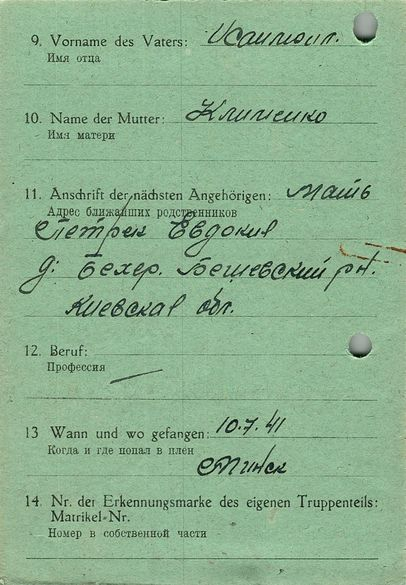 9. Vorname des Vaters:
Имя отца
10. Name der Mutter: Клименко
Имя матери
11. Anschrift der nächsten Angehörigen: Мать
Адрес ближайших родственников
Петрик Евдокия
д. Бехер.
р-н.
Киевская обл.
12. Beruf: —
Профессия
13 Wann und wo gefangen: 10.7.41
Когда и где попал в плен
Минск
14. Nr. der Erkennungsmarke des eigenen Truppenteils:
Matrikel-Nr.
Номер в собственной части